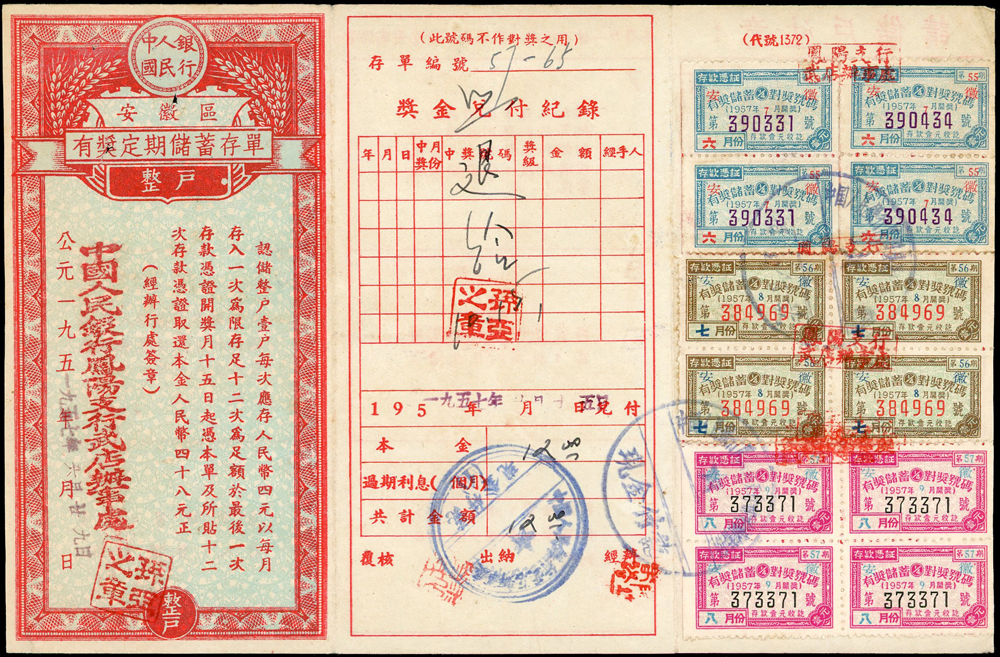 中國人民銀行
安徽區
有獎定期儲蓄存單
整戶
認儲整户壹户每次應存人民幣四元以每月
存入一次為限存足十二次為足額於最後一次
存款憑證開獎月十五日起憑本單及所貼十二
次存款憑證取還本金人民幣四十八元正
(經辦行處簽章)
中國人民銀行鳳陽支行武店辦事處
公元一九五 年 月 日
孫亞之章
整戶
(此號碼不作對獎之用)
存單編號 57-65
獎金兌付紀錄
年 月 日 中獎月份 中獎號碼 獎級 金額 經手人
孫亞之章
195 年 月 日兌付
本金
過期利息( 個月)
共計金額
覆核 出納 經辦
(代號1372)
鳳陽支行
武店辦事處
存款憑証 第55期
安 徽
有獎儲蓄對獎號碼
(1957年7月開獎)
第390331號
六月份 存款壹元收訖
存款憑証 第55期
安 徽
有獎儲蓄對獎號碼
(1957年7月開獎)
第390434號
六月份 存款壹元收訖
存款憑証 第55期
安 徽
有獎儲蓄對獎號碼
(1957年7月開獎)
第390331號
六月份
存款憑証 第55期
徽
有獎儲蓄對獎號碼
(1957年7月開獎)
第390434號
六月份
存款憑証 第56期
安 徽
有獎儲蓄對獎號碼
(1957年8月開獎)
第384969號
七月份 存款壹元收訖
存款憑証 第56期
安 徽
有獎儲蓄對獎號碼
(1957年8月開獎)
第384969號
七月份 存款壹元收訖
存款憑証 第56期
安 徽
有獎儲蓄對獎號碼
(1957年8月開獎)
第384969號
七月份
存款憑証 第56期
安 徽
有獎儲蓄對獎號碼
(1957年8月開獎)
第384969號
七月份
存款憑証 第57期
安 徽
有獎儲蓄對獎號碼
(1957年9月開獎)
第373371號
八月份 存款壹元收訖
存款憑証 第57期
安 徽
有獎儲蓄對獎號碼
(1957年9月開獎)
第373371號
八月份 存款壹元收訖
存款憑証 第57期
安 徽
有獎儲蓄對獎號碼
(1957年9月開獎)
第373371號
八月份 存款壹元收訖
存款憑証 第57期
安 徽
有獎儲蓄對獎號碼
(1957年9月開獎)
第373371號
八月份 存款壹元收訖